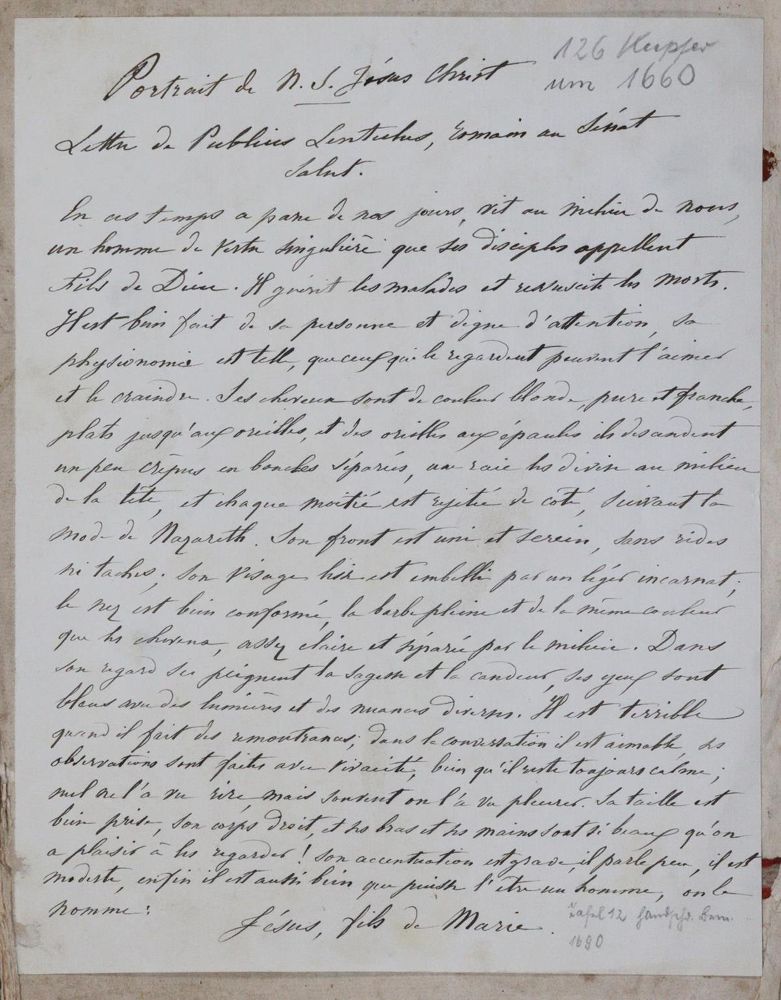 126 Kupfer
um 1660
Portrait de N. S. Jésus Christ
Lettre de Publius Lentulus, romain au Sénat
Salut.
En ces temps a paru de nos jours, vit au milieu de nous,
un homme de vertu singulière que ses disciples appellent
Fils de Dieu. Il guérit les malades et ressuscite les morts.
Il est bien fait de sa personne et digne d'attention, sa
physionomie est telle, que ceux qui le regardent peuvent l'aimer
et le craindre. Ses cheveux sont de couleur blonde, pure et franche,
plats jusqu'aux oreilles, et des oreilles aux épaules ils descendent
un peu crêpus en boucles séparées, une raie les divise au milieu
de la tête, et chaque moitié est rejetée de coté, suivant la
mode de Nazareth. Son front est uni et serein, sans rides
ni taches; son visage est embelli par un léger incarnat;
le nez est bien conformé, la barbe pleine et de la même couleur
que les cheveux, assez claire et séparée par le milieu. Dans
son regard se peignent la sagesse et la candeur, ses yeux sont
bleus avec des lumières et des nuances diverses. Il est terrible
quand il fait des remontrances; dans la conversation il est aimable, ses
observations sont faites avec vivacité, bien qu'il reste toujours calme;
nul ne l'a vu rire, mais souvent on l'a vu pleurer. Sa taille est
bien prise, son corps droit, et les bras et les mains sont si beaux qu'on
a plaisir à les regarder! son accentuation est grave, il parle peu, il est
modeste, enfin il est aussi bien que puisse l'être un homme, on le
nomme:
Jésus, fils de Marie.
Tafel 12 handschr. Bem.
1690